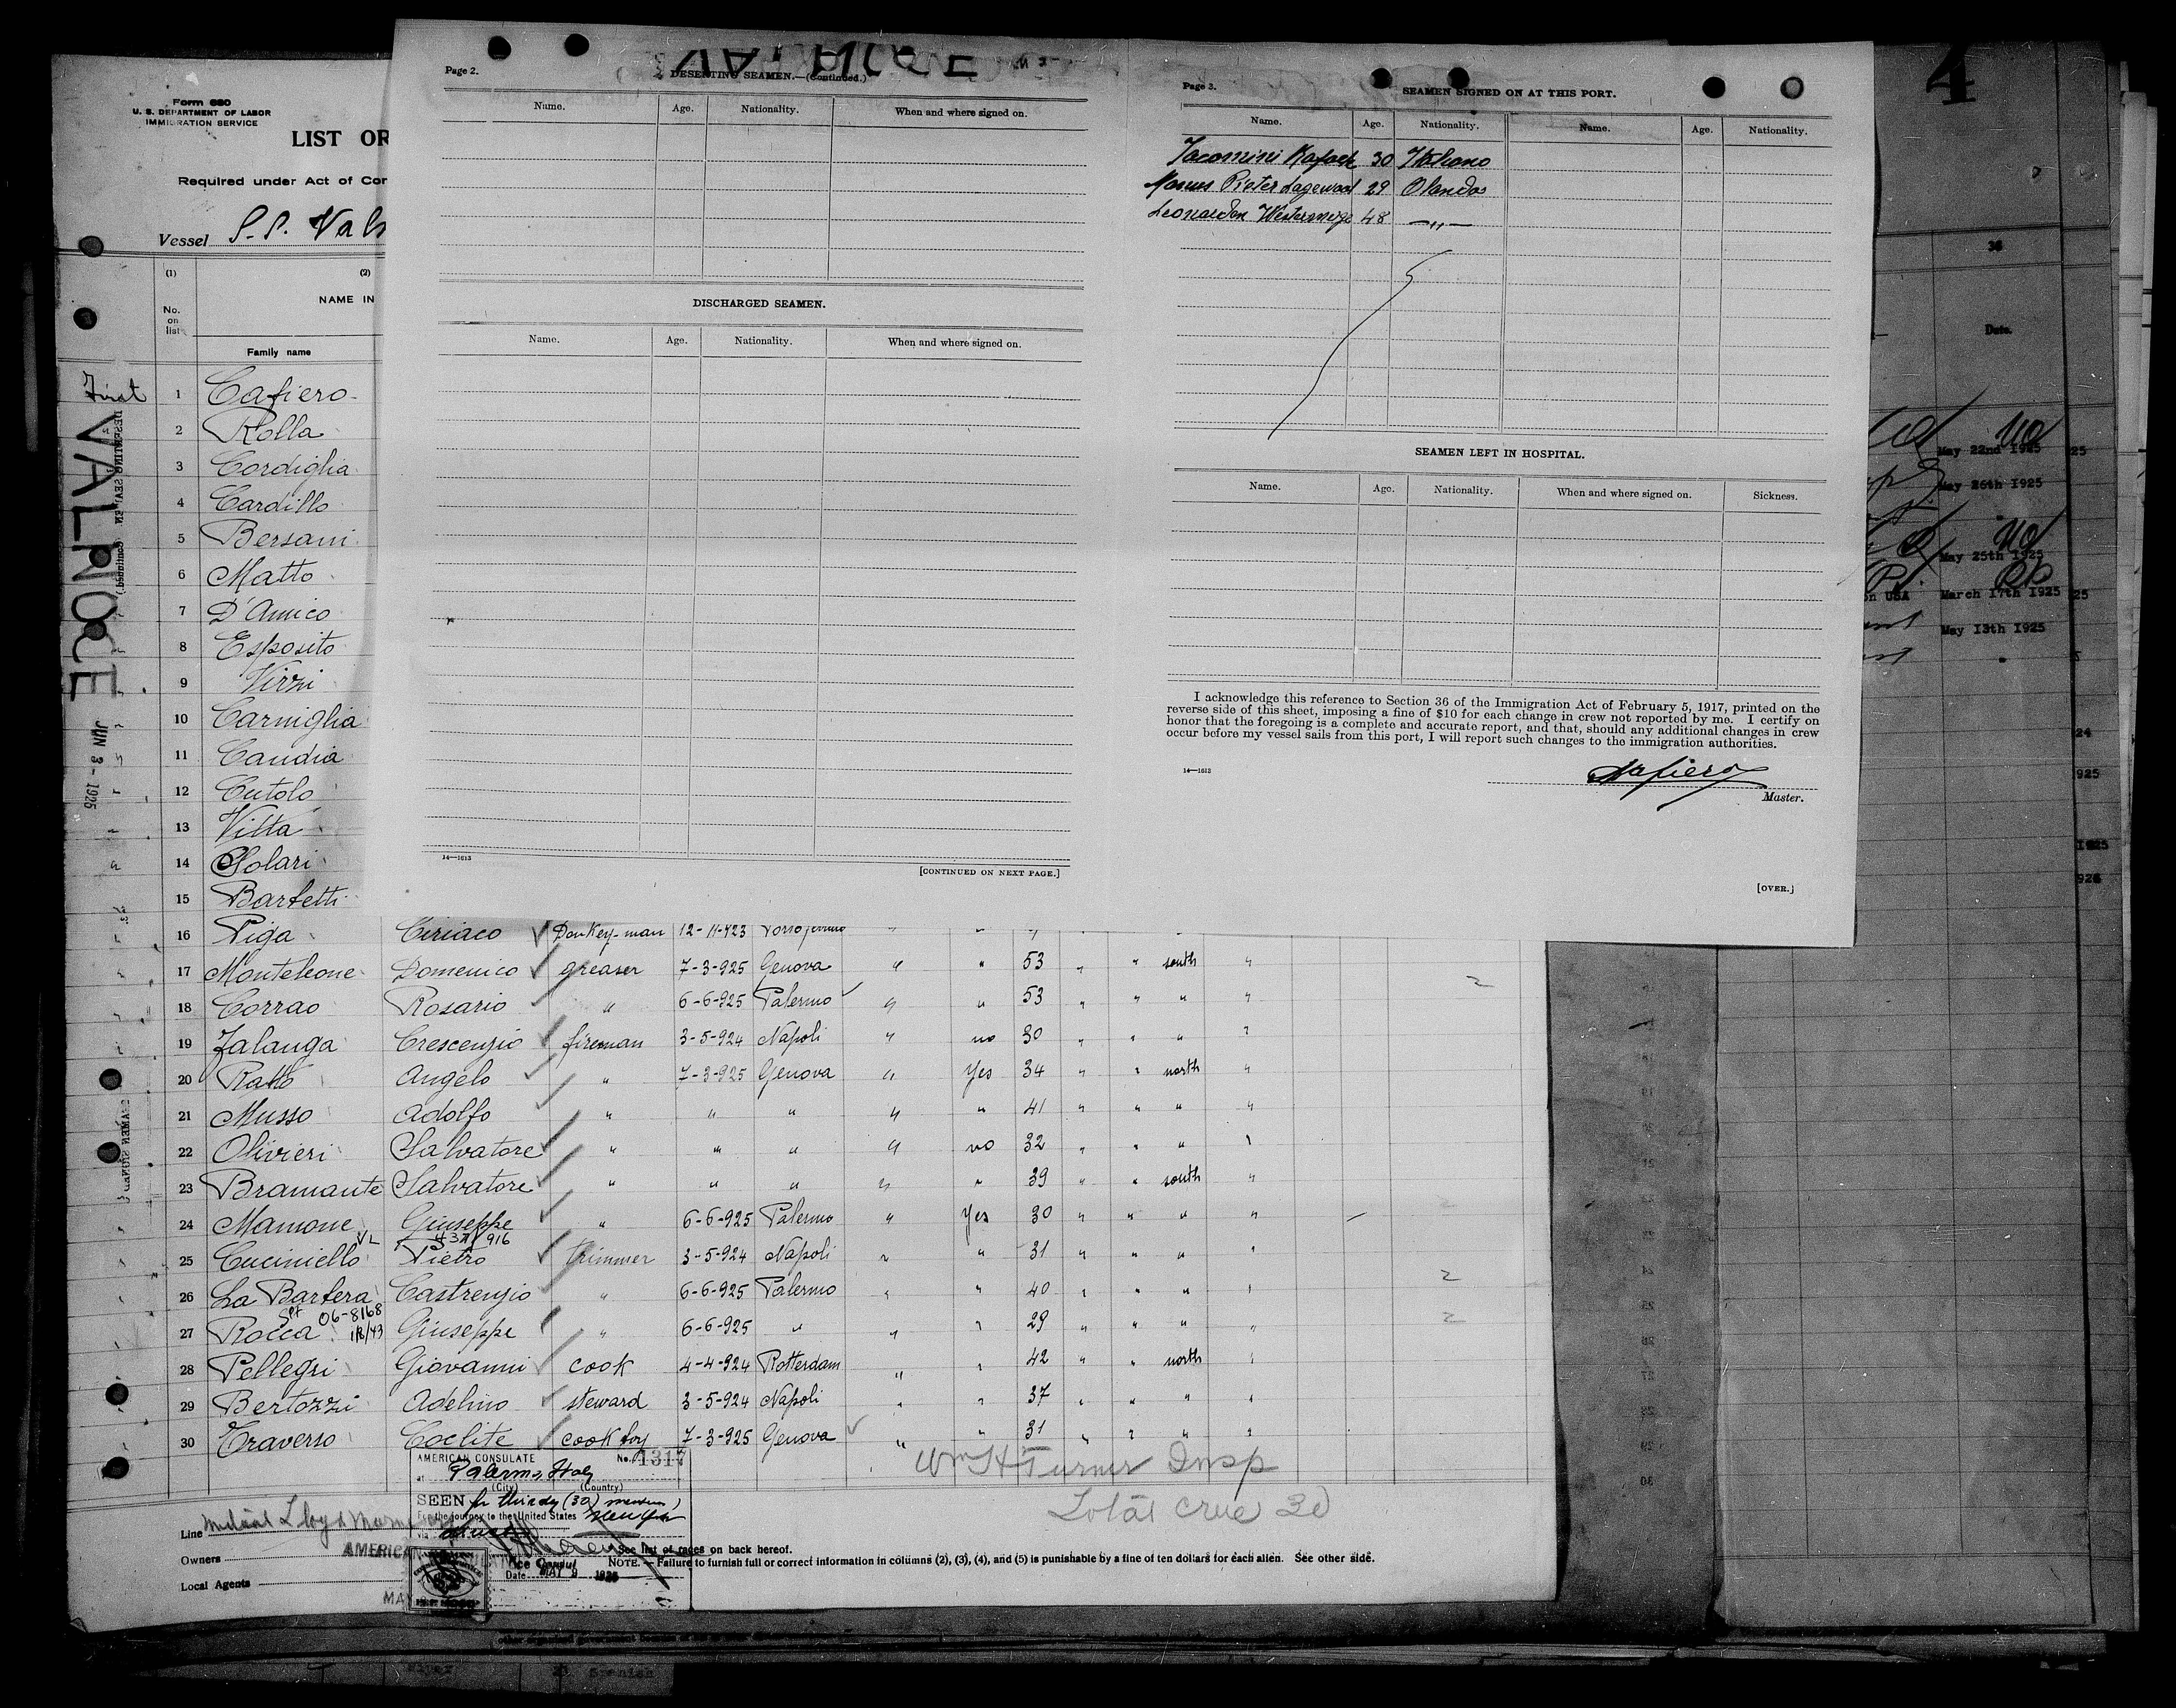 Form 680
U. S. DEPARTMENT OF LABOR
IMMIGRATION SERVICE
LIST OR
Required under Act of Con
Vessel S.S. Val
(1) (2)
No. on list
NAME IN
Family name
First
VALNOCE
JUN 3- 1925
1 Cafiero
2 Rolla
3 Cordiglia
4 Cardillo
5 Bersani
6 Matto
7 D'Amico
8 Esposito
9 Virzi
10 Carniglia
11 Candia
12 Cutolo
13 Vitta
14 Solari
15 Barbetti
16 Piga Ciriaco Donkey-man 12-11-923 " " "
17 Monteleone Domenico greaser 7-3-925 Genova " " 53 " " south "
18 Corrao Rosario " 6-6-925 Palermo " " 53 " " " "
19 Falanga Crescenzio fireman 3-5-924 Napoli " no 30 " " " "
20 Ratto Angelo " 7-3-925 Genova " Yes 34 " " north "
21 Musso Adolfo " " " " " 41 " " " "
22 Olivieri Salvatore " " " " no 32 " " " "
23 Bramante Salvatore " " " " " 39 " " south "
24 Mamone Giuseppe " 6-6-925 Palermo " Yes 30 " " " "
25 Cuciniello Pietro trimmer 3-5-924 Napoli " " 31 " " " "
26 La Barbera Castrenzio " 6-6-925 Palermo " " 40 " " " "
06-8168
27 Rocca Giuseppe " 6-6-925 " " " 29 " " " "
28 Pellegri Giovanni cook 4-4-924 Rotterdam " " 42 " " north "
29 Bertozzi Adelino steward 3-5-924 Napoli " " 37 " " " "
30 Traverso Coclite cook boy 7-3-925 Genova " " 31 " " " "
Wm H Turner Insp
Total crue 30
AMERICAN CONSULATE No. 1317
at Palermo Italy
(City) (Country)
SEEN for thirty (30) members
For the journey to the United States
via
Vice Consul
Date MAY 9 1925
Line
Owners
Local Agents
AMERICAN
MAY
See list of races on back hereof.
NOTE.—Failure to furnish full or correct information in columns (2), (3), (4), and (5) is punishable by a fine of ten dollars for each alien. See other side.
Page 2.
VALNOCE
DESERTING SEAMEN.—(Continued.)
Name. Age. Nationality. When and where signed on.
DISCHARGED SEAMEN.
Name. Age. Nationality. When and where signed on.
14—1613
[CONTINUED ON NEXT PAGE.]
Page 3.
SEAMEN SIGNED ON AT THIS PORT.
Name. Age. Nationality. Name. Age. Nationality.
Iacomini 30 Italiano
Pieter Lagewaal 29 Olandas
48 — " —
SEAMEN LEFT IN HOSPITAL.
Name. Age. Nationality. When and where signed on. Sickness.
I acknowledge this reference to Section 36 of the Immigration Act of February 5, 1917, printed on the
reverse side of this sheet, imposing a fine of $10 for each change in crew not reported by me. I certify on
honor that the foregoing is a complete and accurate report, and that, should any additional changes in crew
occur before my vessel sails from this port, I will report such changes to the immigration authorities.
14—1613
Cafiero
Master.
[OVER.]
4
36
Date.
May 22nd 1925
May 26th 1925
May 25th 1925
on USA March 17th 1925
May 13th 1925